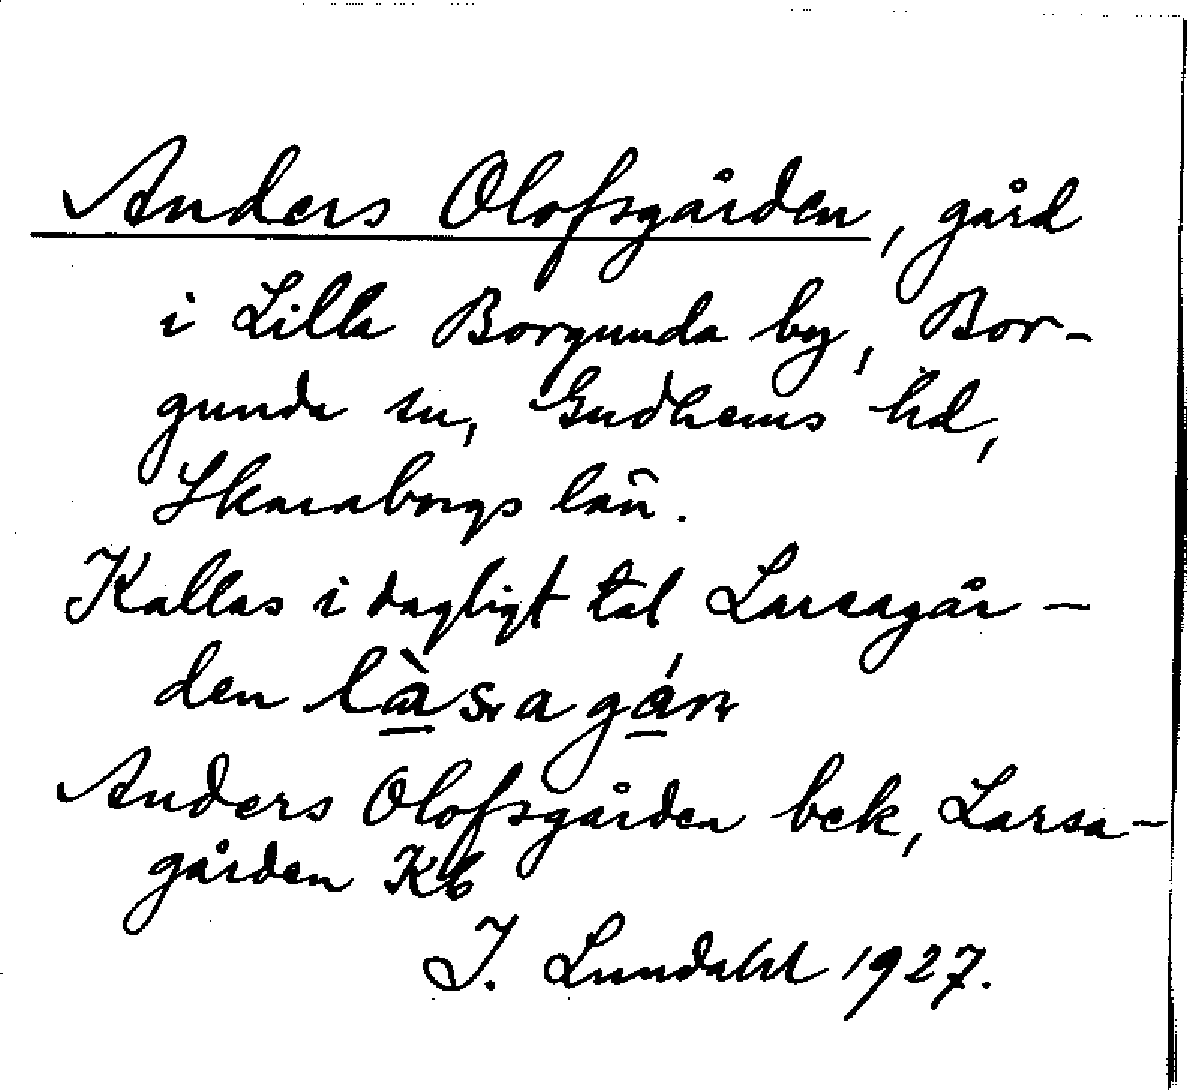 Anders Olofsgården, gård
i Lilla Borgunda by, Bor-
gunda sn, Gudhems hd,
Skaraborgs län.
Kallas i dagligt tal Larsagår-
den
Anders Olofsgården bek, Larsa-
gården Kb
I. Lundahl 1927.